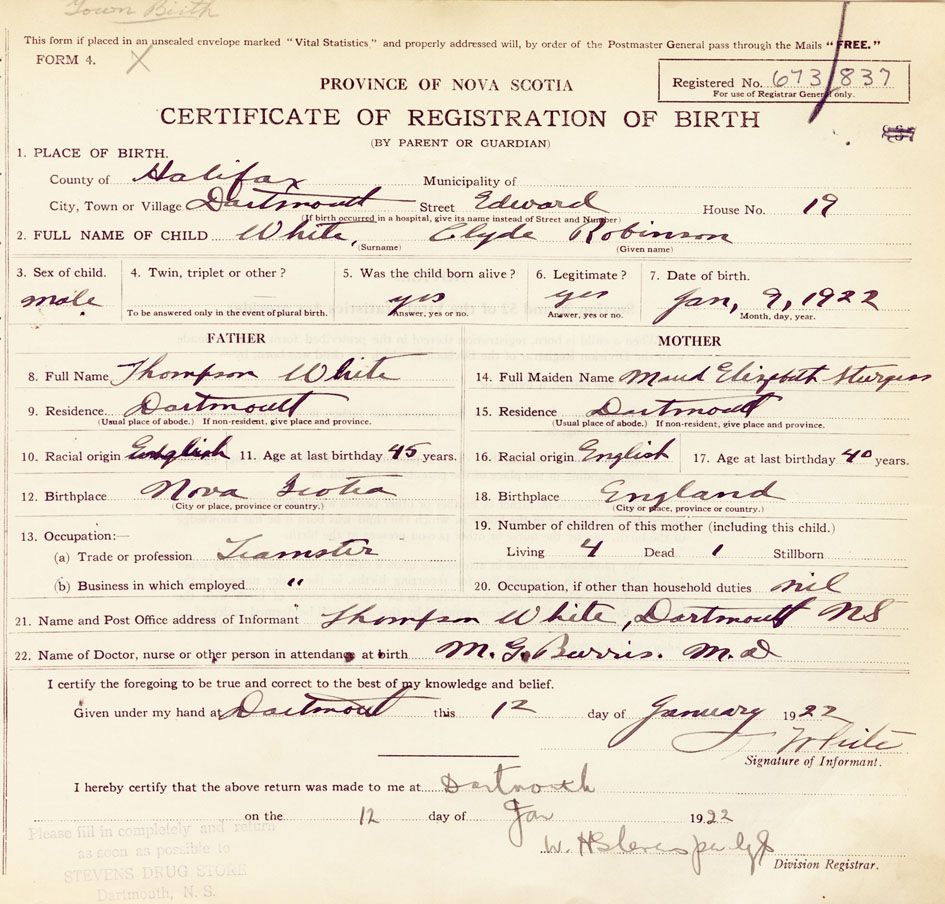 Town Birth
This form if placed in an unsealed envelope marked "Vital Statistics" and properly addressed will, by order of the Postmaster General pass through the Mails "FREE."
FORM 4. X
Registered No. 673/837
For use of Registrar General only.
PROVINCE OF NOVA SCOTIA
CERTIFICATE OF REGISTRATION OF BIRTH
(BY PARENT OR GUARDIAN)
1. PLACE OF BIRTH.
County of Halifax Municipality of
City, Town or Village Dartmouth Street Edward House No. 19
(If birth occurred in a hospital, give its name instead of Street and Number)
2. FULL NAME OF CHILD White, Clyde Robinson
(Surname) (Given name)
3. Sex of child. 4. Twin, triplet or other? 5. Was the child born alive? 6. Legitimate? 7. Date of birth.
male yes yes Jan, 9, 1922
To be answered only in the event of plural birth. Answer, yes or no. Answer, yes or no. Month, day, year.
FATHER
8. Full Name Thompson White
9. Residence Dartmouth
(Usual place of abode.) If non-resident, give place and province.
10. Racial origin English 11. Age at last birthday 45 years.
12. Birthplace Nova Scotia
(City or place, province or country.)
13. Occupation:—
(a) Trade or profession Teamster
(b) Business in which employed "
MOTHER
14. Full Maiden Name Maud Elizabeth Sturgess
15. Residence Dartmouth
(Usual place of abode.) If non-resident, give place and province.
16. Racial origin English 17. Age at last birthday 40 years.
18. Birthplace England
(City or place, province or country.)
19. Number of children of this mother (including this child.)
Living 4 Dead 1 Stillborn
20. Occupation, if other than household duties nil
21. Name and Post Office address of Informant Thompson White, Dartmouth NS
22. Name of Doctor, nurse or other person in attendance at birth M. G. Burris. M.D
I certify the foregoing to be true and correct to the best of my knowledge and belief.
Given under my hand at Dartmouth this 12 day of January 1922
White
Signature of Informant.
I hereby certify that the above return was made to me at Dartmouth
on the 12 day of Jan 1922
W. H Stevens per
Division Registrar.
Please fill in completely and return
as soon as possible to
STEVENS DRUG STORE
Dartmouth, N. S.